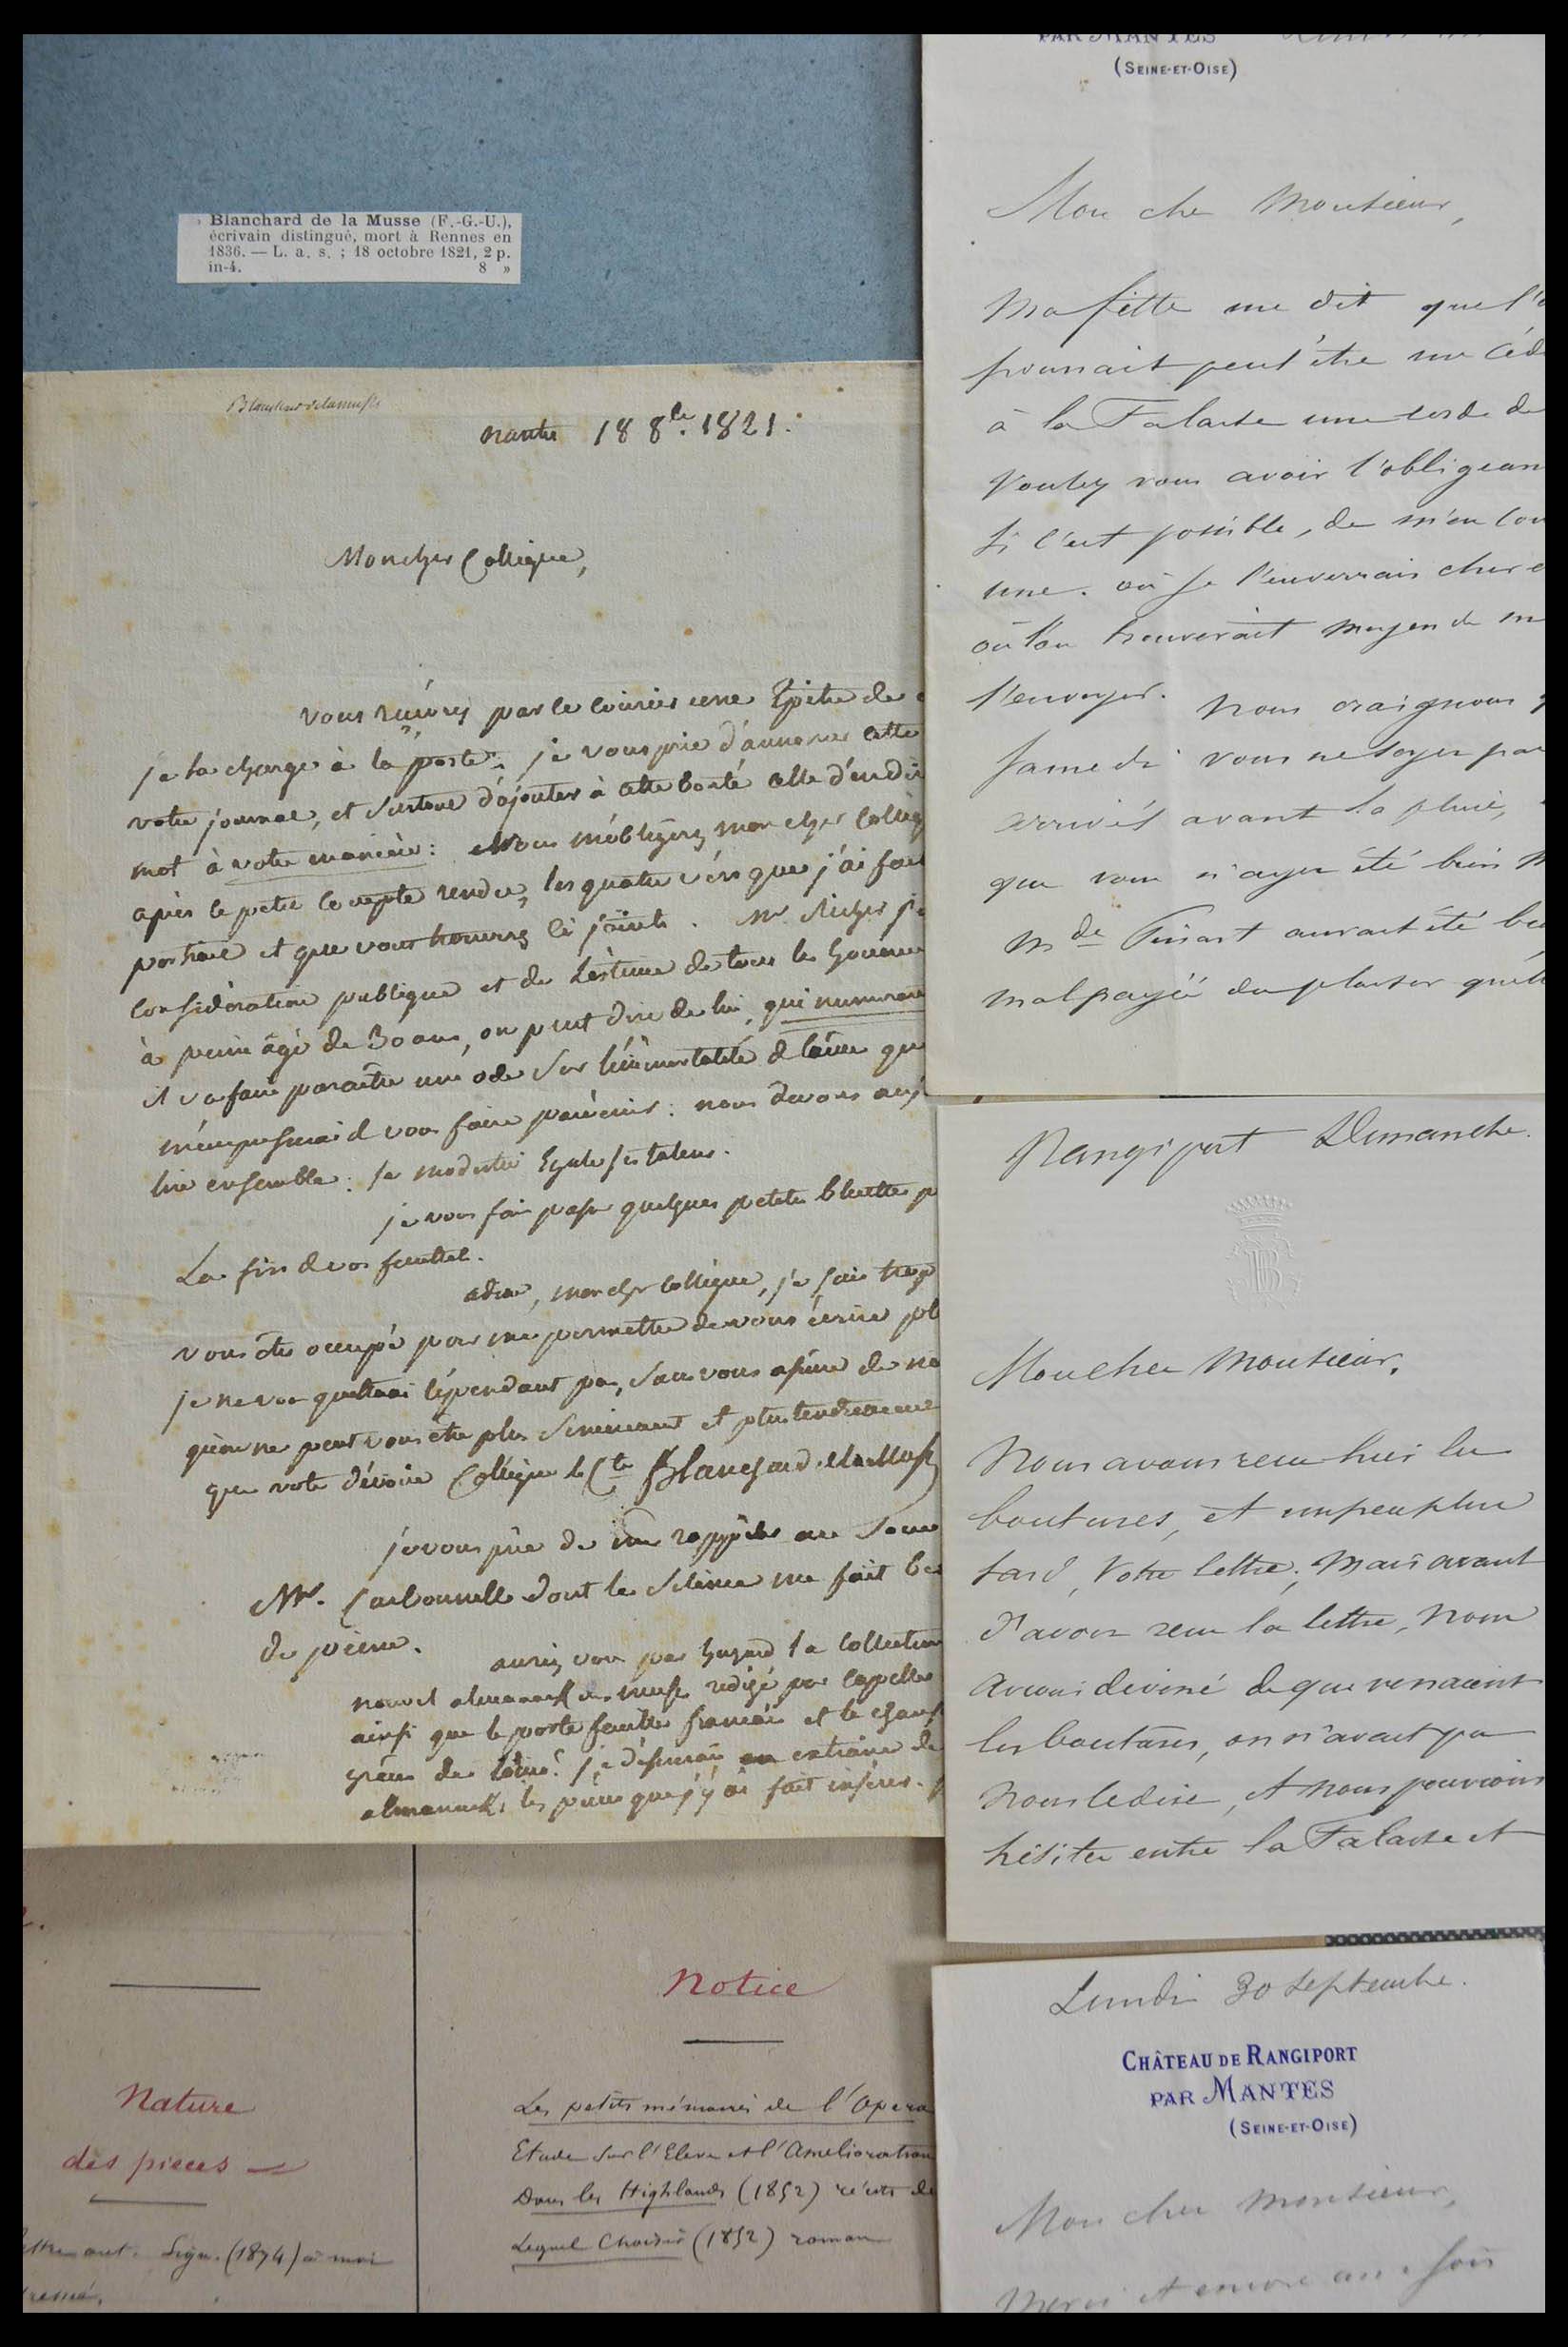 Blanchard de la Musse (F.-G.-U.),
écrivain distingué, mort à Rennes en
1836. — L. a. s. ; 18 octobre 1821, 2 p.
in-4. 8 »
nantes 18 8bre. 1821.
Mon cher Collègue,
vous recevrez par le courier une Epitre de
je la charge à la poste. je vous prie d'annoncer cette
votre journal, et surtout d'ajouter à cette bonté celle d'en dire
mot à votre manière: Vous m'obligerez mon cher Collèg
après le petit compte rendu, les quatre vers que j'ai fait
portrait et que vous trouverez ci joints. Mr Richer
considération publique et de l'estime de tous les
à peine âgé de 30 ans, on peut dire de lui,
il va faire paraître une ode sur l'immortalité de l'âme que
m'empresserai d vous faire parvenir: nous devons
lire ensemble: sa modestie Egale ses talens.
je vous fais passer quelques petites bluettes p
La fin de vos feuilles.
adieu, mon cher collègue, je sais trop
vous êtes occupé pour me permettre de vous écrire pl
je ne vous quitterai cependant pas, sans vous
qu'on ne peut vous être plus sincèrement et plus tendrement
que votre dévoué Collègue le Cte Blanchard de la Musse
je vous prie de me rappeler au souv
Mr. Carbonnelle dont le silence me fait be
de peine.
auriez vous par hazard la collection
nouvel almanach des muses redigé par Capelle
ainsi que le porte feuille français et le
je désirerais extraire de
almanachs les pièces que j'y ai fait insérer.
Nature
des pièces
Sign. (1874) à moi
Notice
Les petits mémoires de l'Opera
Etude sur l'Eleve et l'Amelioration
Dans les Highlands (1852) récits de
Lequel Choisir (1852) roman
PAR MANTES
(SEINE-ET-OISE)
Mon che Monsieur,
Ma fille me dit que l'
pourrait peut être me céd
à la Falaise une corde de
Voulez vous avoir l'obligean
si c'est possible, de m'en
une. où je l'enverrais cherc
où l'on trouverait moyen de m
l'envoyer. Nous craignons
samedi vous ne soyez pa
arrivés avant la pluie,
que vous n'ayez été bien m
Mde aurait été
mal payée du plaisir qu'ell
Rangiport Dimanche.
Mon cher Monsieur,
Nous avons reçu hier les
boutures, et un peu plus
tard, Votre lettre; Mais avant
d'avoir reçu la lettre, Nous
avions deviné de qui venaient
les boutures, on n'avait pu
Nous le dire, et nous pouvions
hésiter entre la Falaise et
Lundi 30 Septembre.
CHÂTEAU DE RANGIPORT
PAR MANTES
(SEINE-ET-OISE)
Mon cher Monsieur,
Merci et encore une fois